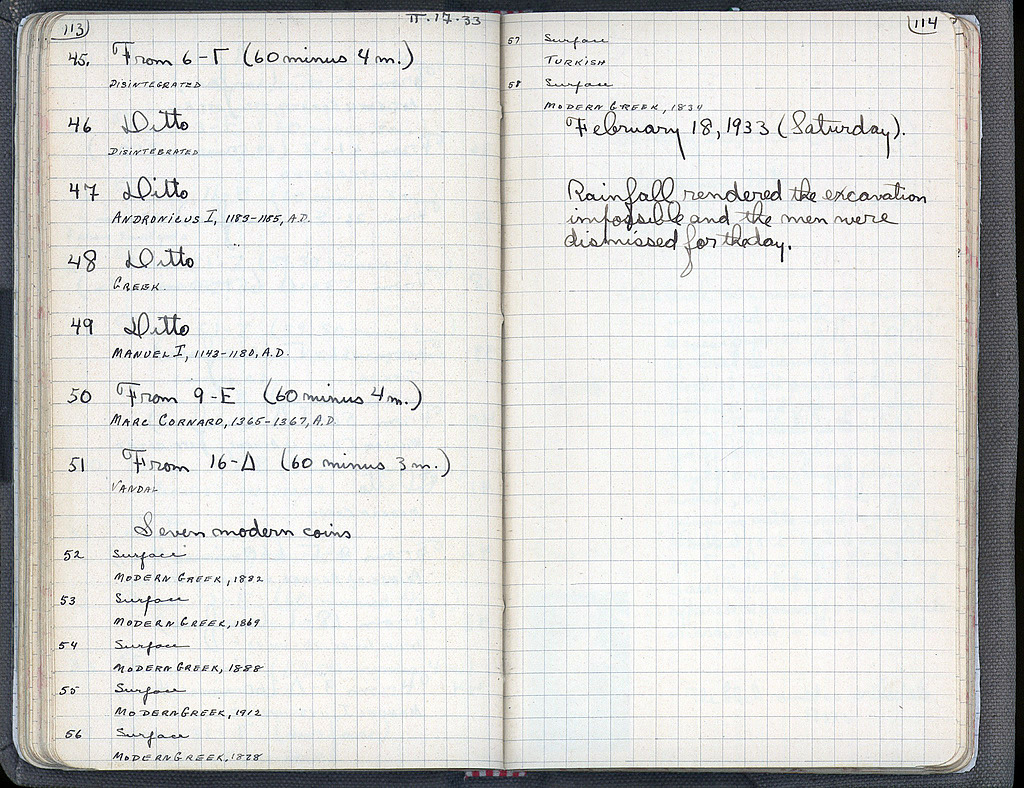 113
II.17.33
45. From 6-Γ (60 minus 4m.)
DISINTEGRATED
46 Ditto
DISINTEGRATED
47 Ditto
ANDRONICUS I, 1183-1185, A.D.
48 Ditto
GREEK.
49 Ditto
MANUEL I, 1143-1180, A.D.
50 From 9-E (60 minus 4m.)
MARC CORNARO, 1365-1367, A.D.
51 From 16-Δ (60 minus 3m.)
VANDAL
Seven modern coins
52 Surface
MODERN GREEK, 1882
53 Surface
MODERN GREEK, 1869
54 Surface
MODERN GREEK, 1888
55 Surface
MODERN GREEK, 1912
56 Surface
MODERN GREEK, 1878
114
57 Surface
TURKISH
58 Surface
MODERN GREEK, 1834
February 18, 1933 (Saturday).
Rainfall rendered the excavation
impossible and the men were
dismissed for the day.